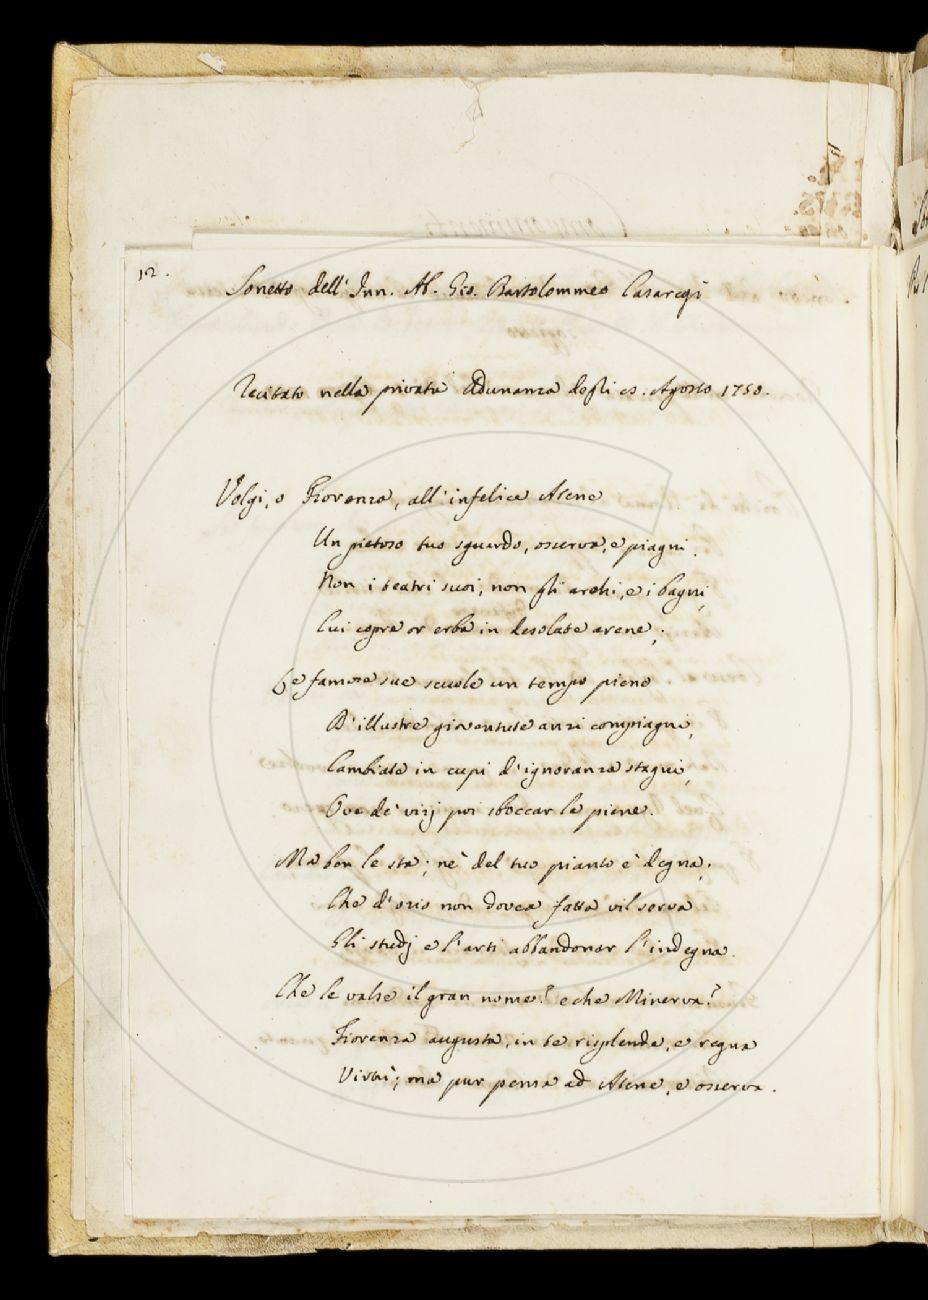 12.
Sonetto dell' Inn. Ab. Gio. Bartolommeo Casaregi
Recitato nella privata Adunanza degli Agosto 1750.
Volgi, o Fiorenza, all' infelice Atene
Un pietoso tuo sguardo, osserva, e piagni.
Non i teatri suoi, non gli archi, e i bagni,
Cui copre or erba in desolate arene;
Le famose sue scuole un tempo piene
D' illustre gioventute anzi compiagni,
Cambiate in cupi d' ignoranza stagni,
Ove de' vizj poi sboccar le piene.
Ma ben le sta; nè del tuo pianto è degna;
Che d' ozio non dovea fatta vil serva
Gli studj e l' arti abbandonar l' indegna.
Che le valse il gran nome? e che Minerva?
Fiorenza augusta, in te risplende, e regna
Virtù; ma pur pensa ad Atene, e osserva.